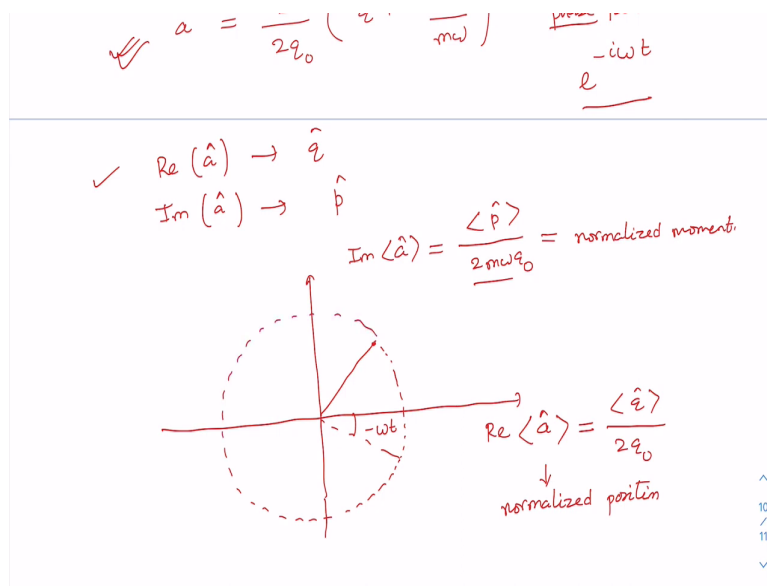 a = / 2q₀ ( q / mω )
e^{-iωt}
Re (â) → q̂
Im (â) → p̂
Im ⟨â⟩ = ⟨p̂⟩ / 2mωq₀ = normalized moment.
-ωt
Re ⟨â⟩ = ⟨q̂⟩ / 2q₀
↓
normalized positin
10
/
11